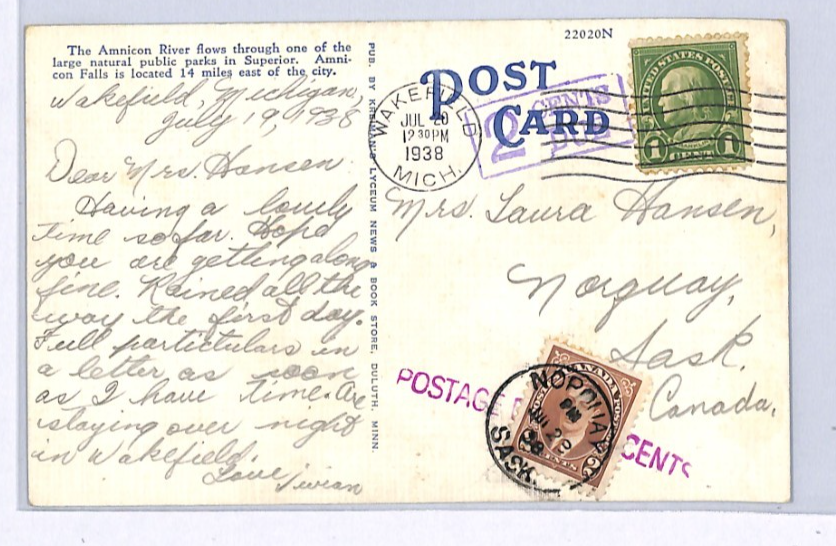 The Amnicon River flows through one of the
large natural public parks in Superior. Amni-
con Falls is located 14 miles east of the city.
Wakefield, Michigan,
July 19, 1938
Dear Mrs. Hansen
Having a lovely
time so far. Hope
you are getting along
fine. Rained all the
way the first day.
Full particulars in
a letter as soon
as I have time. Are
staying over night
in Wakefield.
Love
Vivian
LYCEUM NEWS & BOOK STORE, DULUTH, MINN.
PUB. BY
22020N
POST
CARD
2 CENTS
DUE
WAKEFIELD
JUL 20
12 30 PM
1938
MICH.
UNITED STATES POSTAGE
1 CENT 1
Mrs. Laura Hansen,
Norquay,
Sask.
Canada.
POSTAGE
CENTS
CANADA
NORQUAY
PM
38
SASK.
2